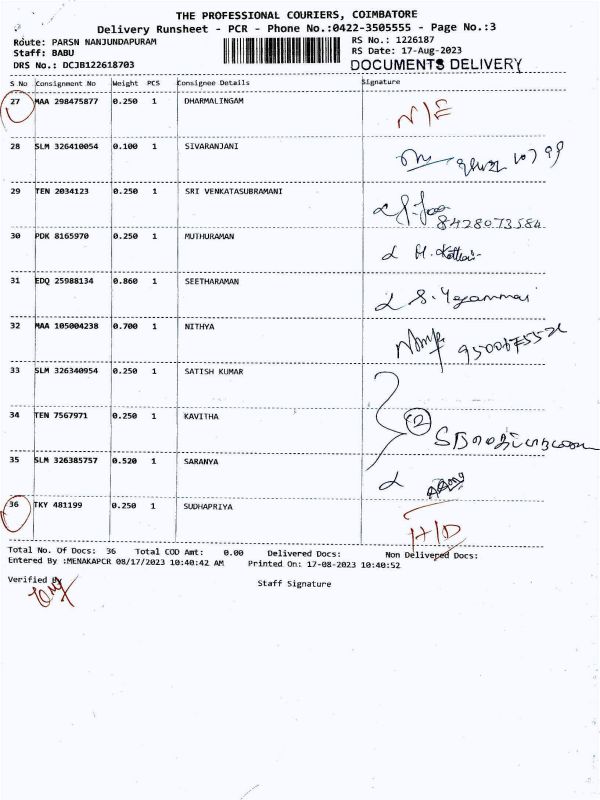 THE PROFESSIONAL COURIERS, COIMBATORE
Delivery Runsheet - PCR - Phone No.:0422-3505555 - Page No.:3
Route: PARSN NANJUNDAPURAM RS No.: 1226187
Staff: BABU RS Date: 17-Aug-2023
DRS No.: DCJB122618703 DOCUMENTS DELIVERY
S No Consignment No Weight PCS Consignee Details Signature
27 MAA 298475877 0.250 1 DHARMALINGAM N/E
28 SLM 326410054 0.100 1 SIVARANJANI
29 TEN 2034123 0.250 1 SRI VENKATASUBRAMANI
8428073584
30 PDK 8165970 0.250 1 MUTHURAMAN
31 EDQ 25988134 0.860 1 SEETHARAMAN
32 MAA 105004238 0.700 1 NITHYA
33 SLM 326340954 0.250 1 SATISH KUMAR
34 TEN 7567971 0.250 1 KAVITHA 2
35 SLM 326385757 0.520 1 SARANYA
36 TKY 481199 0.250 1 SUDHAPRIYA
H/D
Total No. Of Docs: 36 Total COD Amt: 0.00 Delivered Docs: Non Delivered Docs:
Entered By :MENAKAPCR 08/17/2023 10:40:42 AM Printed On: 17-08-2023 10:40:52
Verified By Staff Signature